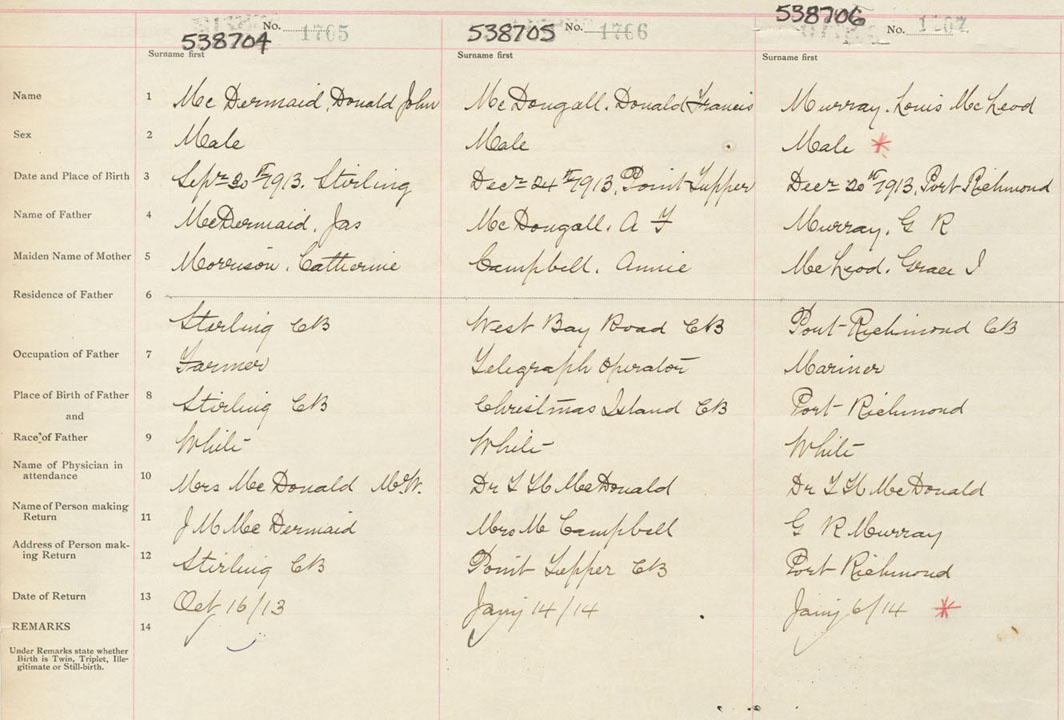 538704 No. 1765
538705 No. 1766
538706 No.
Surname first Surname first Surname first
Name 1 McDermaid, Donald John McDougall. Donald Francis Murray. Louis McLeod
Sex 2 Male Male Male *
Date and Place of Birth 3 Sepr 30th 1913. Stirling Decr 24th 1913, Point Tupper Decr 20th 1913, Port Richmond
Name of Father 4 McDermaid, Jas McDougall. A F Murray. G R
Maiden Name of Mother 5 Morrison. Catherine Campbell. Annie McLeod. Grace I
Residence of Father 6 Stirling CB West Bay Road CB Port Richmond CB
Occupation of Father 7 Farmer Telegraph Operator Mariner
Place of Birth of Father 8 Stirling CB Christmas Island CB Port Richmond
and
Race of Father 9 White White White
Name of Physician in
attendance 10 Mrs McDonald M.W. Dr McDonald Dr McDonald
Name of Person making
Return 11 J M McDermaid Mrs M Campbell G R Murray
Address of Person mak-
ing Return 12 Stirling CB Point Tupper CB Port Richmond
Date of Return 13 Oct 16/13 Jany 14/14 Jany 6/14 *
REMARKS 14
Under Remarks state whether
Birth is Twin, Triplet, Ille-
gitimate or Still-birth.